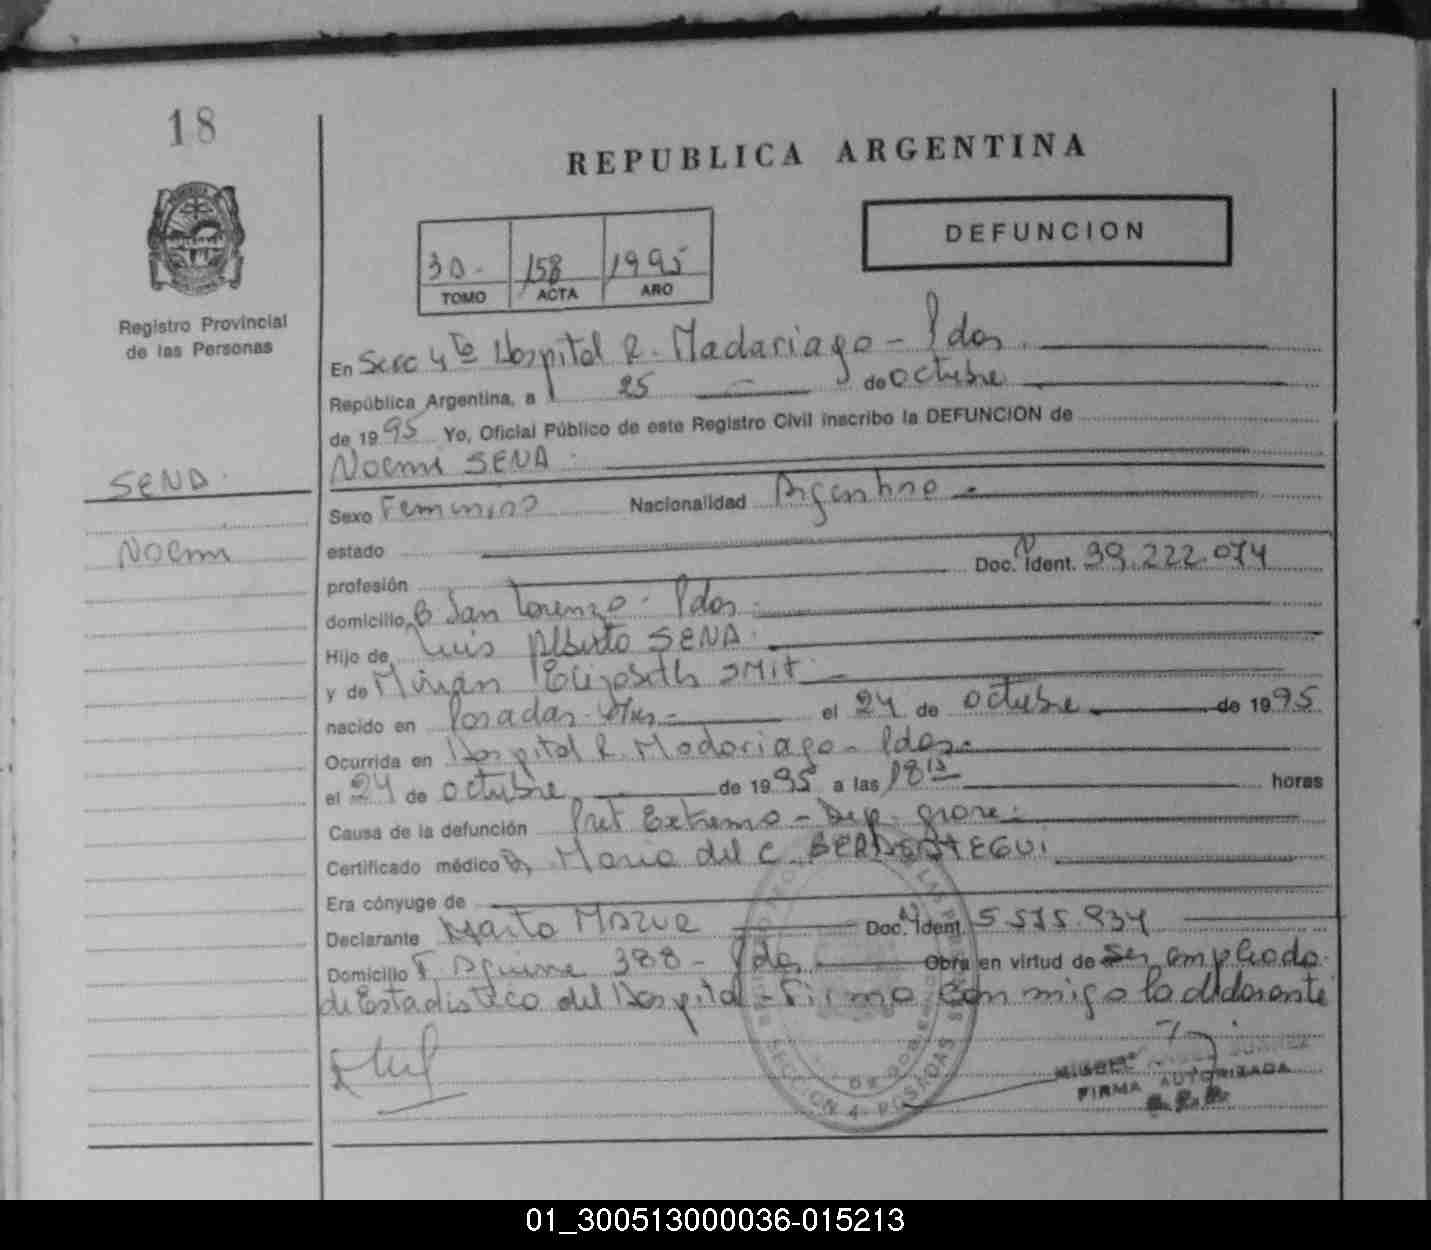 18
REPUBLICA ARGENTINA
DEFUNCION
30- 158 1995
TOMO ACTA AÑO
Registro Provincial
de las Personas
En Secc 4ta Hospital R. Madariaga - Pdas.
República Argentina, a 25 de octubre
de 1995 Yo, Oficial Público de este Registro Civil inscribo la DEFUNCION de
Noemi SENA.
SENA.
Noemi
Sexo Femenino Nacionalidad Argentina
estado
profesión Doc. N Ident. 39.222.074
domicilio B San Lorenzo - Pdas.
Hijo de Luis Alberto SENA.
y de Mirian Elizabeth SMIT
nacido en Posadas - Mnes - el 24 de octubre de 1995
Ocurrida en Hospital R. Madariaga - Pdas.
el 24 de octubre de 1995 a las 18 15 horas
Causa de la defunción Pret Extremo - Dep. grave.
Certificado médico Maria del C.
Era cónyuge de
Declarante Marta Doc. N Ident. 5.575.934
Domicilio F. Aguirre 388 - Pdas Obra en virtud de Ser empleada
de Estadistica del Hospital - Firma conmigo la declarante
SECCION 4 POSADAS
MIGUEL
FIRMA AUTORIZADA
01_300513000036-015213